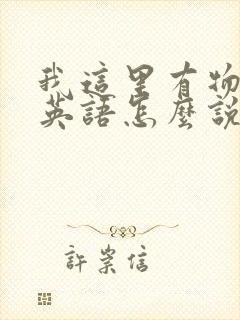 我這里有物
英語怎麼說
許崇信